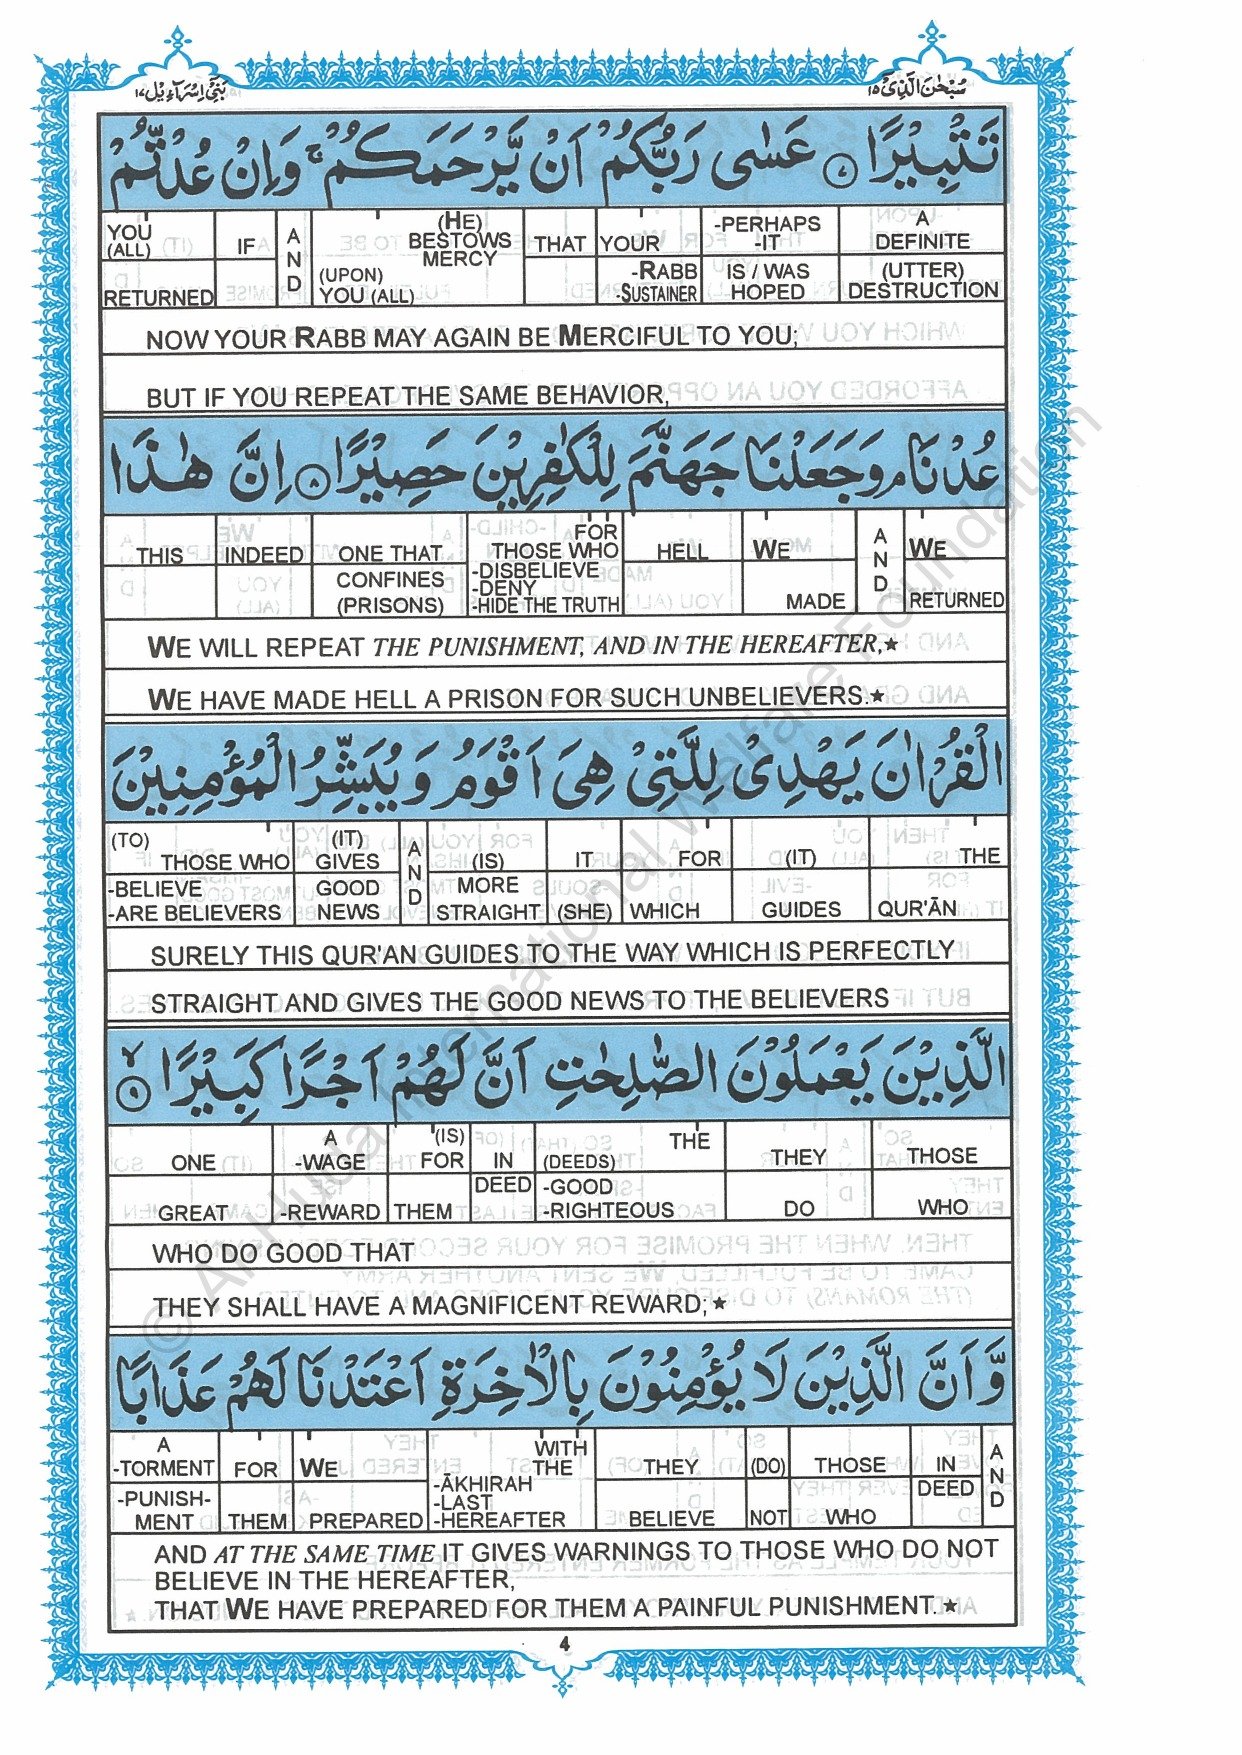 بَنِیْۤ اِسْرَآءِیْل ١٧ سُبْحٰنَ الَّذِیْۤ ١٥
تَتْبِیْرًا ٧ عَسٰی رَبُّكُمْ اَنْ یَّرْحَمَكُمْ ۚ وَاِنْ عُدْتُّمْ
YOU (ALL) RETURNED | IF | AND | (HE) BESTOWS MERCY (UPON) YOU (ALL) | THAT | YOUR -RABB -SUSTAINER | -PERHAPS -IT IS / WAS HOPED | A DEFINITE (UTTER) DESTRUCTION
NOW YOUR RABB MAY AGAIN BE MERCIFUL TO YOU;
BUT IF YOU REPEAT THE SAME BEHAVIOR,
عُدْنَا ۘ وَجَعَلْنَا جَهَنَّمَ لِلْكٰفِرِیْنَ حَصِیْرًا ٨ اِنَّ هٰذَا
THIS | INDEED | ONE THAT CONFINES (PRISONS) | FOR THOSE WHO -DISBELIEVE -DENY -HIDE THE TRUTH | HELL | WE MADE | AND | WE RETURNED
WE WILL REPEAT THE PUNISHMENT, AND IN THE HEREAFTER,★
WE HAVE MADE HELL A PRISON FOR SUCH UNBELIEVERS.★
الْقُرْاٰنَ یَهْدِیْ لِلَّتِیْ هِیَ اَقْوَمُ وَ یُبَشِّرُ الْمُؤْمِنِیْنَ
(TO) THOSE WHO -BELIEVE -ARE BELIEVERS | (IT) GIVES GOOD NEWS | AND | (IS) MORE STRAIGHT | IT (SHE) | FOR WHICH | (IT) GUIDES | THE QUR'ĀN
SURELY THIS QUR'AN GUIDES TO THE WAY WHICH IS PERFECTLY
STRAIGHT AND GIVES THE GOOD NEWS TO THE BELIEVERS
الَّذِیْنَ یَعْمَلُوْنَ الصّٰلِحٰتِ اَنَّ لَهُمْ اَجْرًا كَبِیْرًا ٩ ۙ
ONE GREAT | A -WAGE -REWARD | (IS) FOR THEM | IN DEED | THE (DEEDS) -GOOD -RIGHTEOUS | THEY DO | THOSE WHO
WHO DO GOOD THAT
THEY SHALL HAVE A MAGNIFICENT REWARD;★
وَّ اَنَّ الَّذِیْنَ لَا یُؤْمِنُوْنَ بِالْاٰخِرَةِ اَعْتَدْنَا لَهُمْ عَذَابًا
A -TORMENT -PUNISH-MENT | FOR THEM | WE PREPARED | WITH THE -ĀKHIRAH -LAST -HEREAFTER | THEY BELIEVE | (DO) NOT | THOSE WHO | IN DEED | AND
AND AT THE SAME TIME IT GIVES WARNINGS TO THOSE WHO DO NOT
BELIEVE IN THE HEREAFTER,
THAT WE HAVE PREPARED FOR THEM A PAINFUL PUNISHMENT.★
4
© Al-Huda International Welfare Foundation